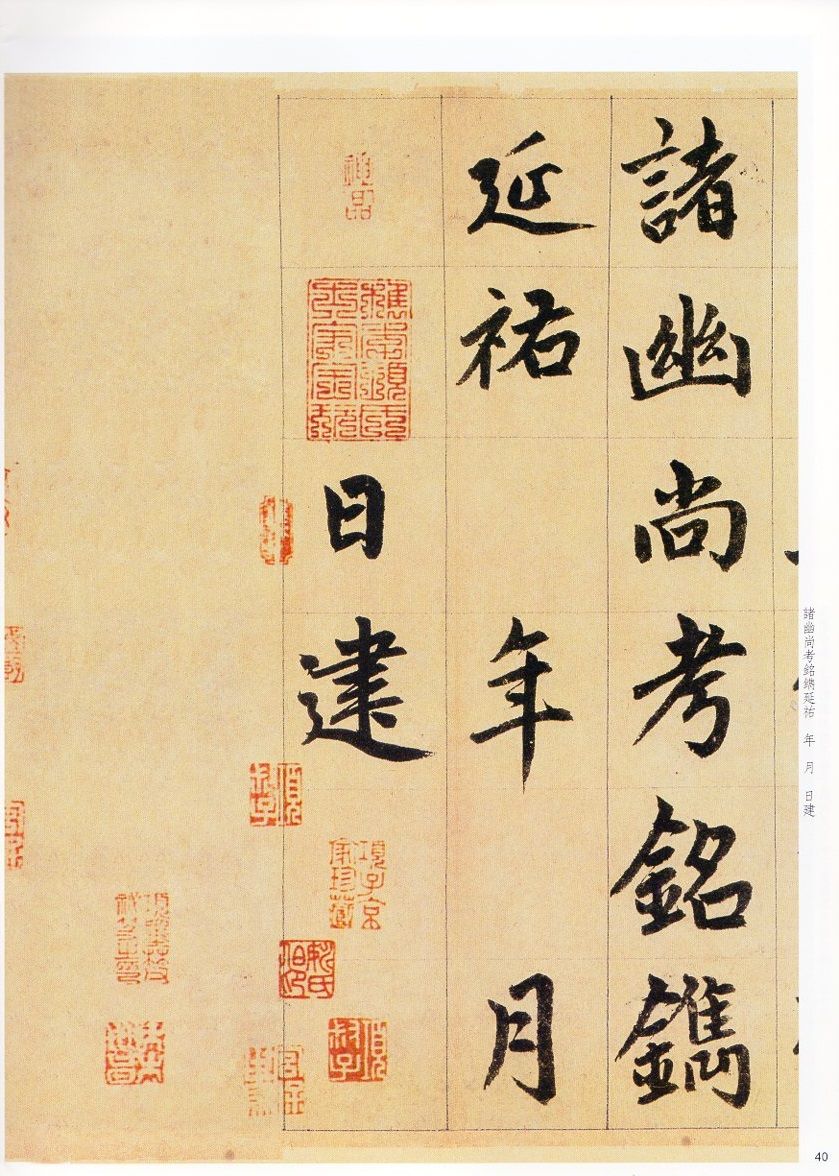 諸幽尚考銘鐫
延祐 年 月
日建
神品
項子京家珍藏
諸幽尚考銘鐫延祐 年 月 日建
40